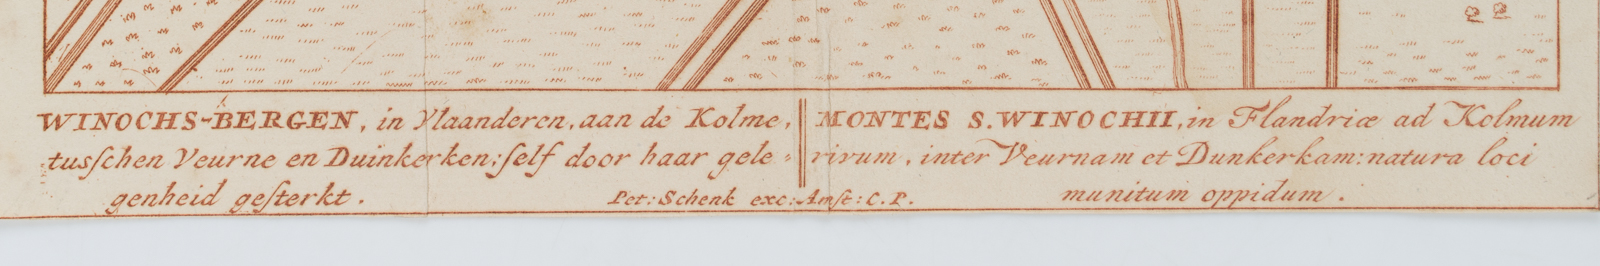 WINOCHS-BERGEN, in Vlaanderen, aan de Kolme,
tusſchen Veurne en Duinkerken; ſelf door haar gele-
genheid geſterkt.
MONTES S. WINOCHII, in Flandriæ ad Kolmum
rivum, inter Veurnam et Dunkerkam: natura loci
munitum oppidum.
Pet: Schenk exc: Amſt: C. P.